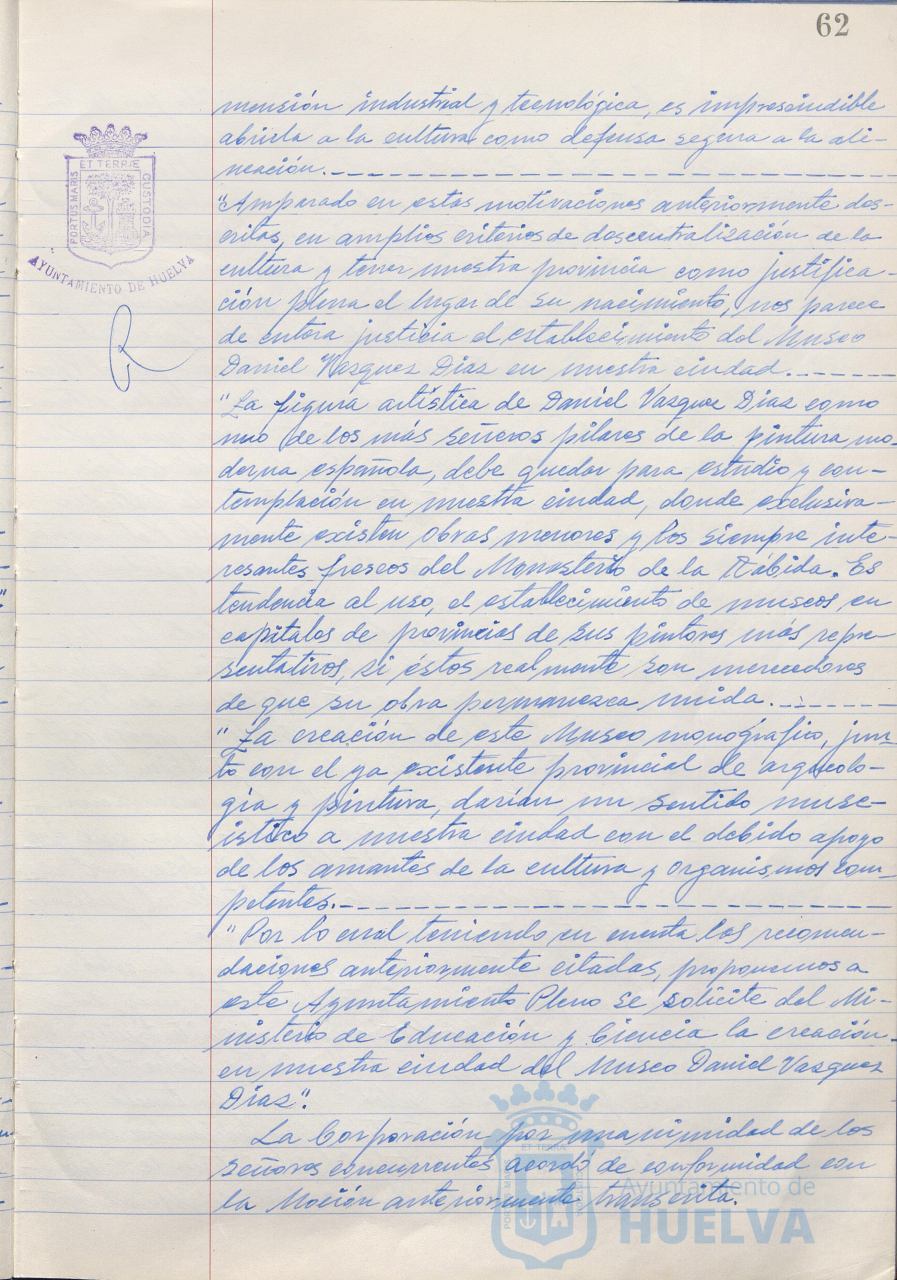 62
mensión industrial y tecnológica, es imprescindible
abrirla a la cultura como defensa segura a la ali-
neación.
"Amparado en estas motivaciones anteriormente des-
critas, en amplios criterios de descentralización de la
cultura y tener nuestra provincia como justifica-
ción plena el lugar de su nacimiento, nos parece
de entera justicia el establecimiento del Museo
Daniel Vazquez Diaz en nuestra ciudad.
"La figura artística de Daniel Vazquez Diaz como
uno de los más señeros pilares de la pintura mo-
derna española, debe quedar para estudio y con-
templación en nuestra ciudad, donde exclusiva-
mente existen obras menores y los siempre inte-
resantes frescos del Monasterio de la Rábida. Es
tendencia al uso, el establecimiento de museos en
capitales de provincias de sus pintores más repre-
sentativos, si éstos realmente son merecedores
de que su obra permanezca unida.
"La creación de este Museo monográfico, jun-
to con el ya existente provincial de arqueolo-
gía y pintura, darían un sentido muse-
ístico a nuestra ciudad con el debido apoyo
de los amantes de la cultura y organismos com-
petentes.
"Por lo cual teniendo en cuenta las recomen-
daciones anteriormente citadas, proponemos a
este Ayuntamiento Pleno se solicite del Mi-
nisterio de Educación y Ciencia la creación
en nuestra ciudad del Museo Daniel Vazquez
Díaz".
La Corporación por unanimidad de los
señores concurrentes acordó de conformidad con
la Moción anteriormente transcrita.
PORTUS MARIS ET TERRÆ CUSTODIA
AYUNTAMIENTO DE HUELVA
Ayuntamiento de
HUELVA